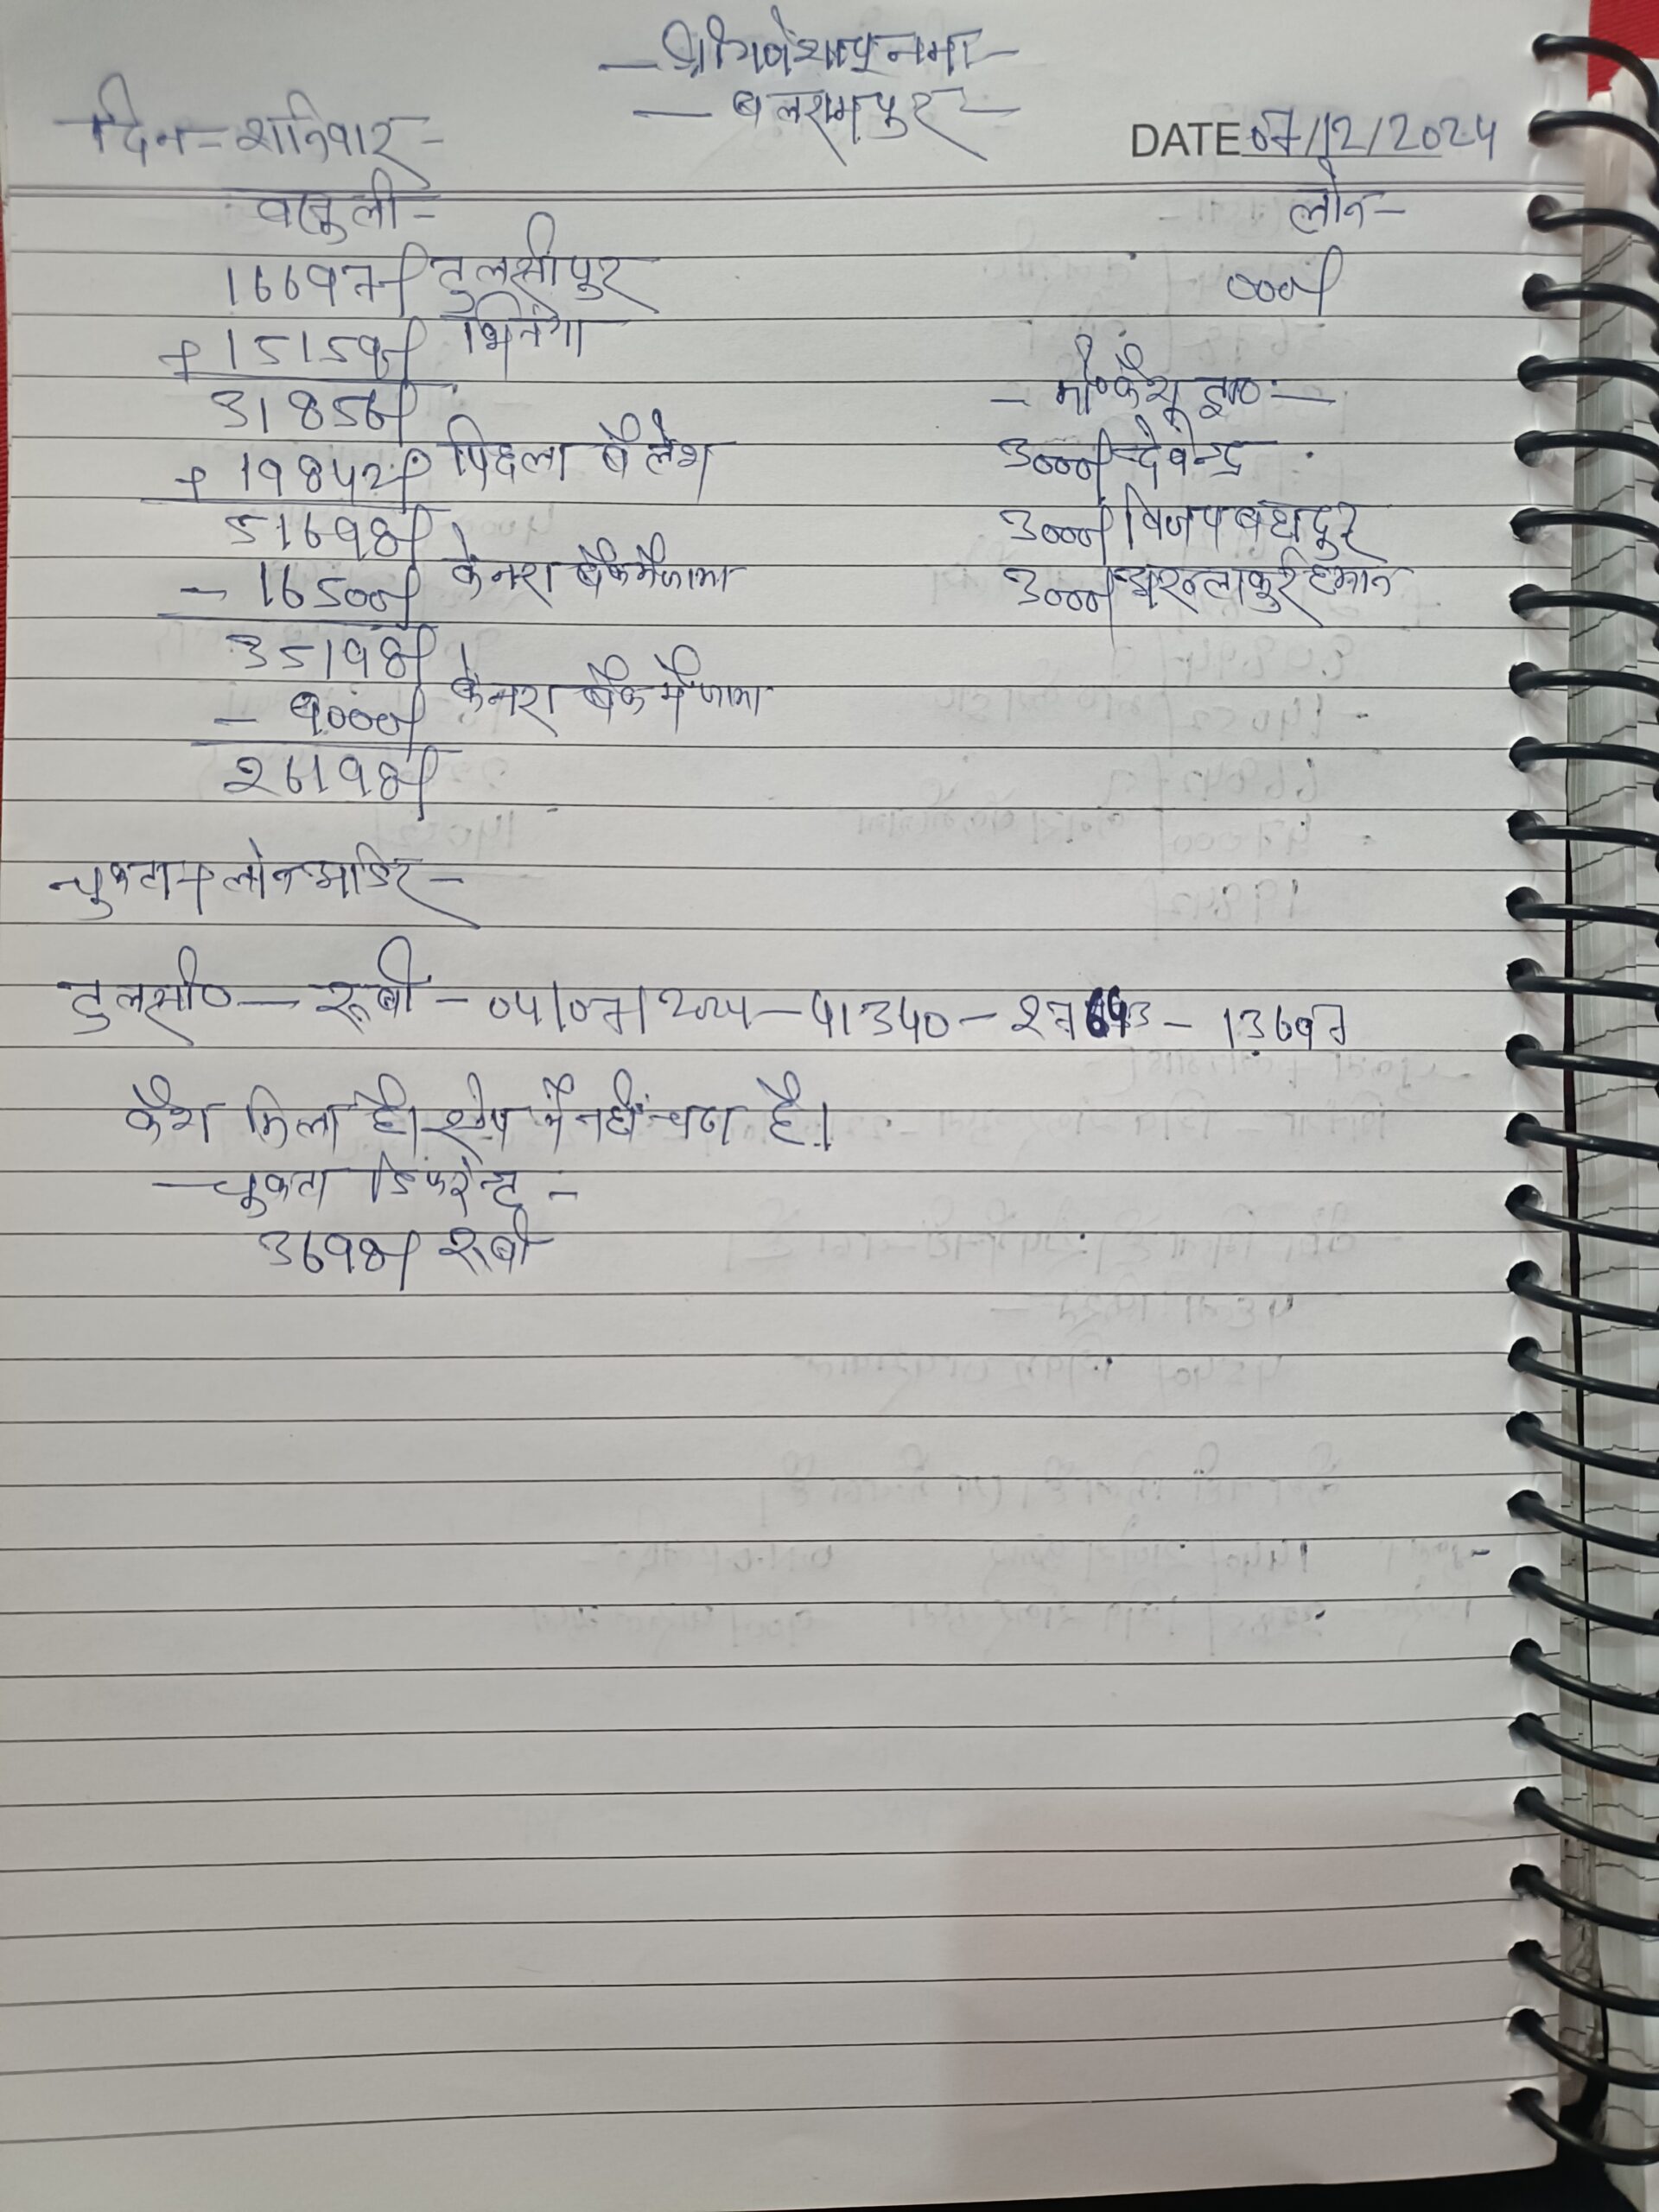 —श्री गणेशाय नमः—
— बलरामपुर —
दिन - शनिवार - DATE 07/12/2024
वसूली - लोन -
16697/ तुलसीपुर 000/
+ 15159/ भिनगा
31856/
+ 19842/ पिछला बैलेंश 3000/ देवेन्द्र
51698/ 3000/ विजय बहादुर
- 16500/ केनरा बैंक में जमा 3000/
35198/
- 9000/ केनरा बैंक में जमा
26198/
चुकता + लोन आर्डर -
तुलसी० — रूबी - 04/07/2024 - 41340 - 27643 - 13697
कैश मिला है। ऐप में नहीं चढा है।
— चुकता डिफरेन्ट -
3698/ रूबी